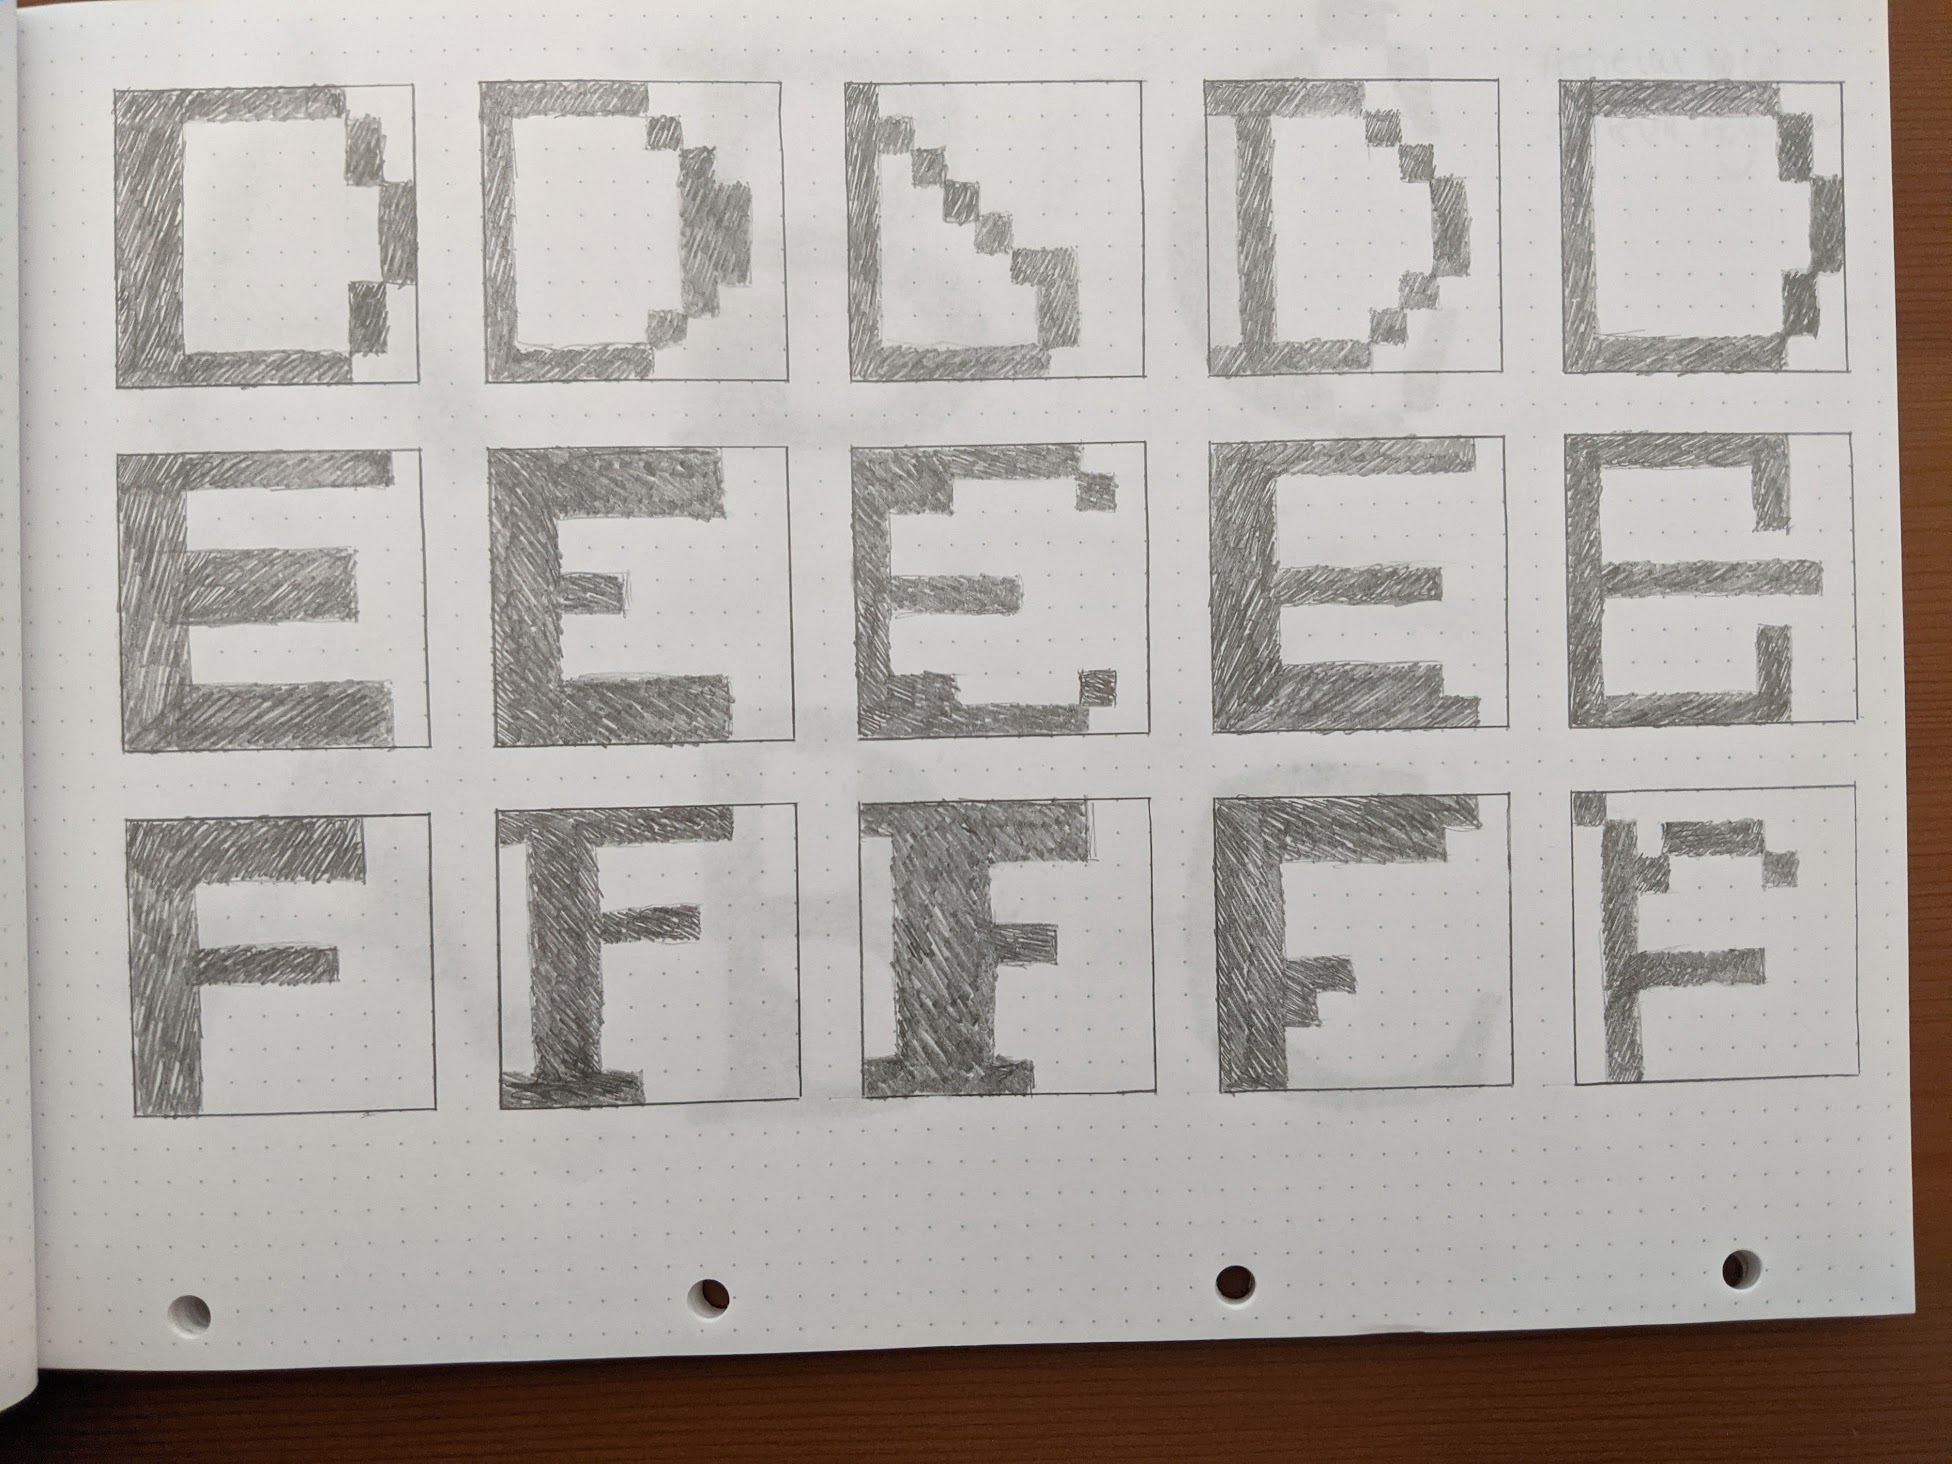 D D D D D
E E E E E
F F F F F